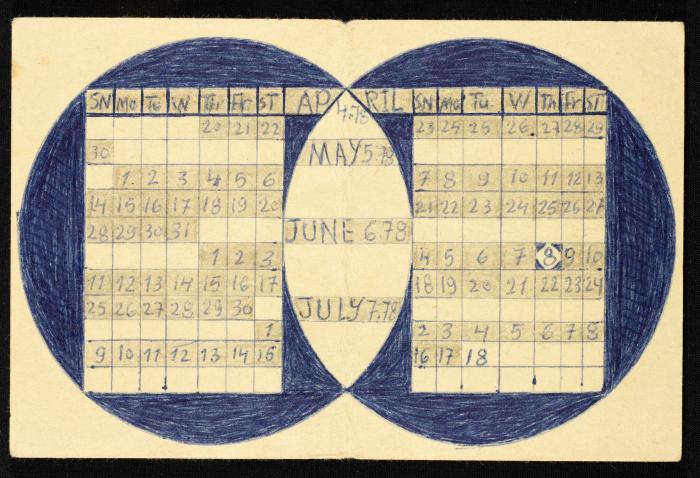 SN Mo Te W Th Fr ST APRIL SN Mo Tu W Th Fr ST
4.78
20 21 22 23 24 25 26 27 28 29
30 MAY 5.78
1 2 3 4 5 6 7 8 9 10 11 12 13
14 15 16 17 18 19 20 21 22 23 24 25 26 27
28 29 30 31 JUNE 6.78
1 2 3 4 5 6 7 8 9 10
11 12 13 14 15 16 17 18 19 20 21 22 23 24
25 26 27 28 29 30 JULY 7.78
1 2 3 4 5 6 7 8
9 10 11 12 13 14 15 16 17 18